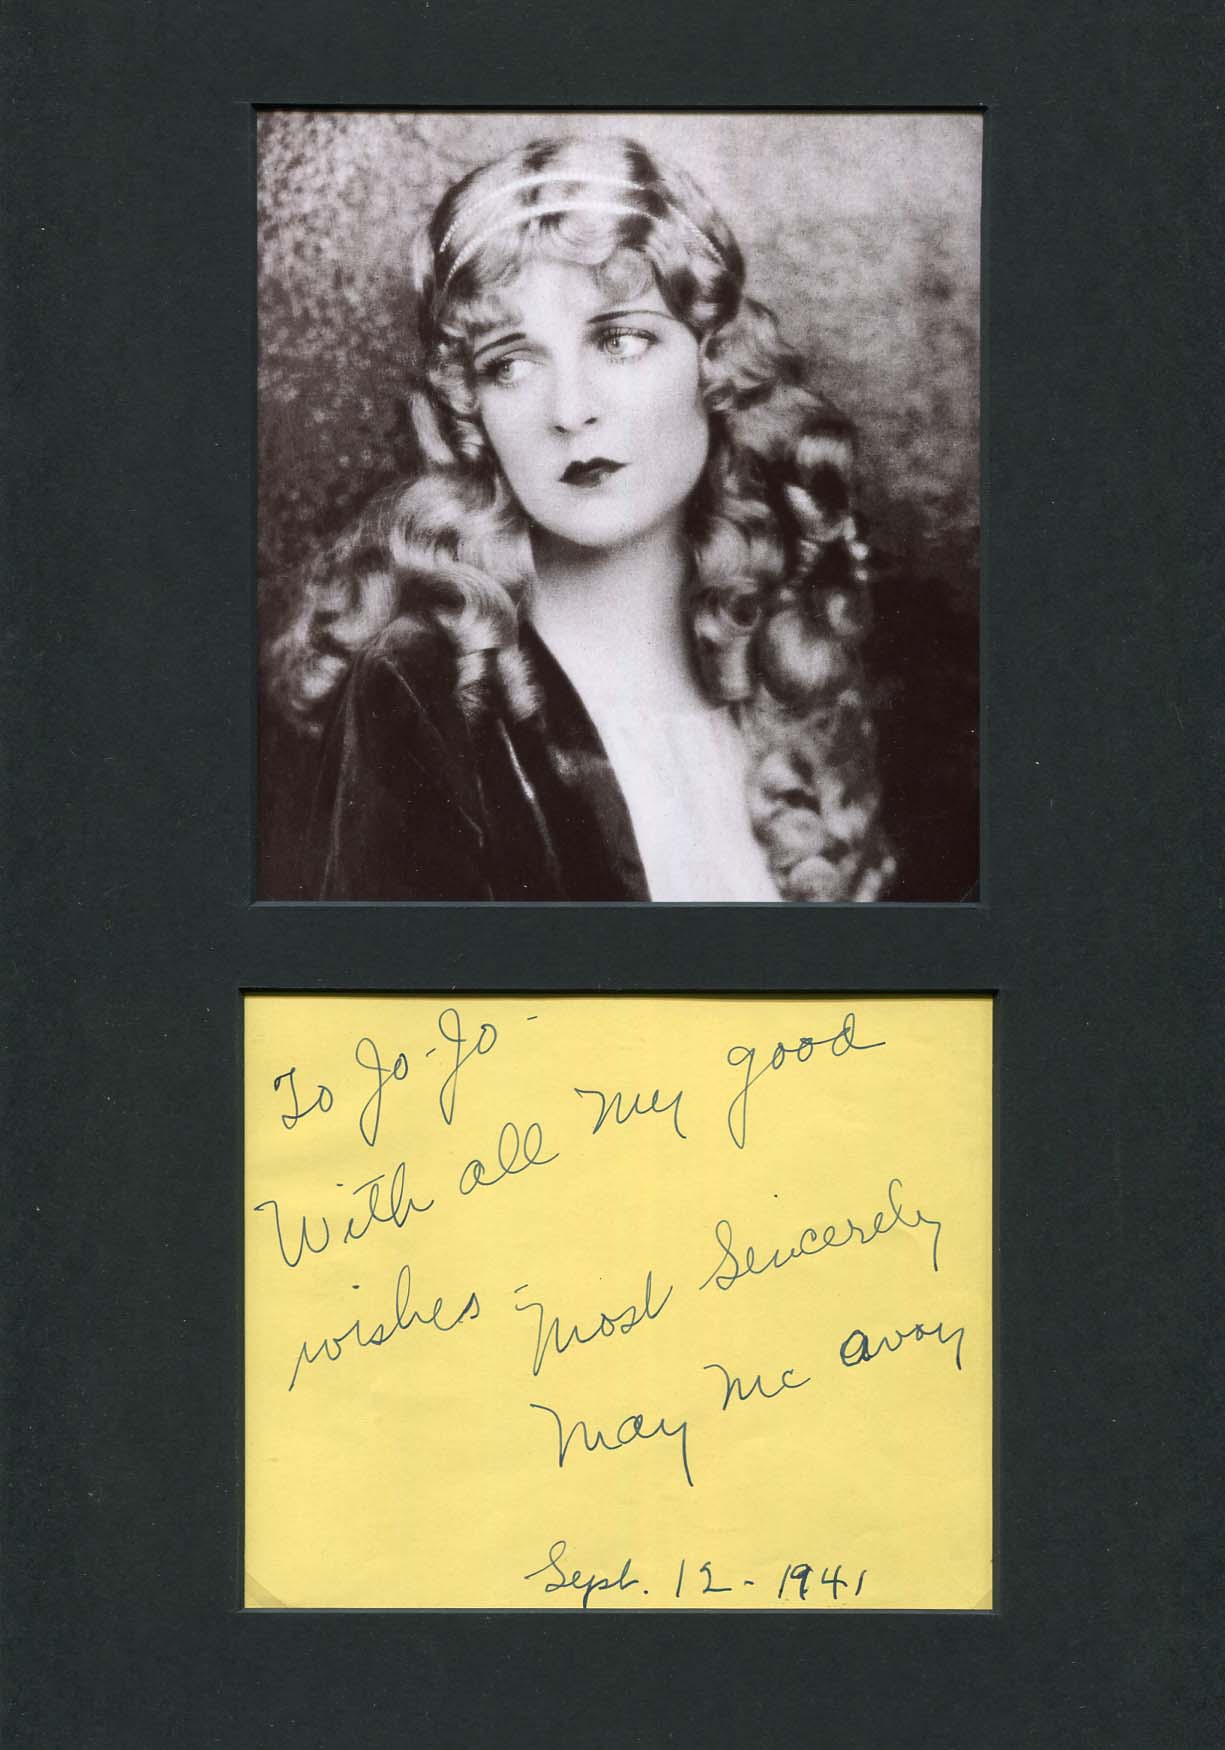 To Jo-Jo-
With all my good
wishes - Most Sincerely
May Mc avoy
Sept. 12 - 1941